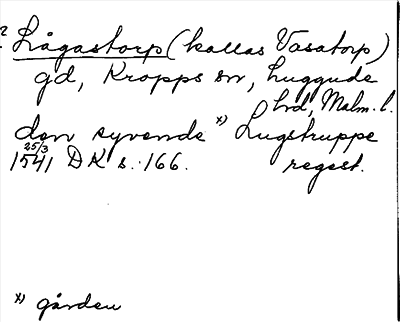 ? Lågastorp (kallas Vasatorp)
gd, Kropps sn, Luggude
hrd, Malm. l.
den syvende x) Lugstruppe
1541 25/3 DK s. 166. regest.
x) gården